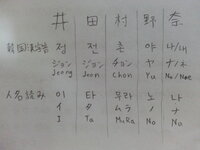 井 田 村 野 奈
韓国漢字音 정 전 촌 야 나/내
ジョン ジョン チョン ヤ ナ/ネ
Jeong Jeon Chon Ya Na/Nae
人名読み 이 타 무라 노 나
イ タ ムラ ノ ナ
I Ta MuRa No Na